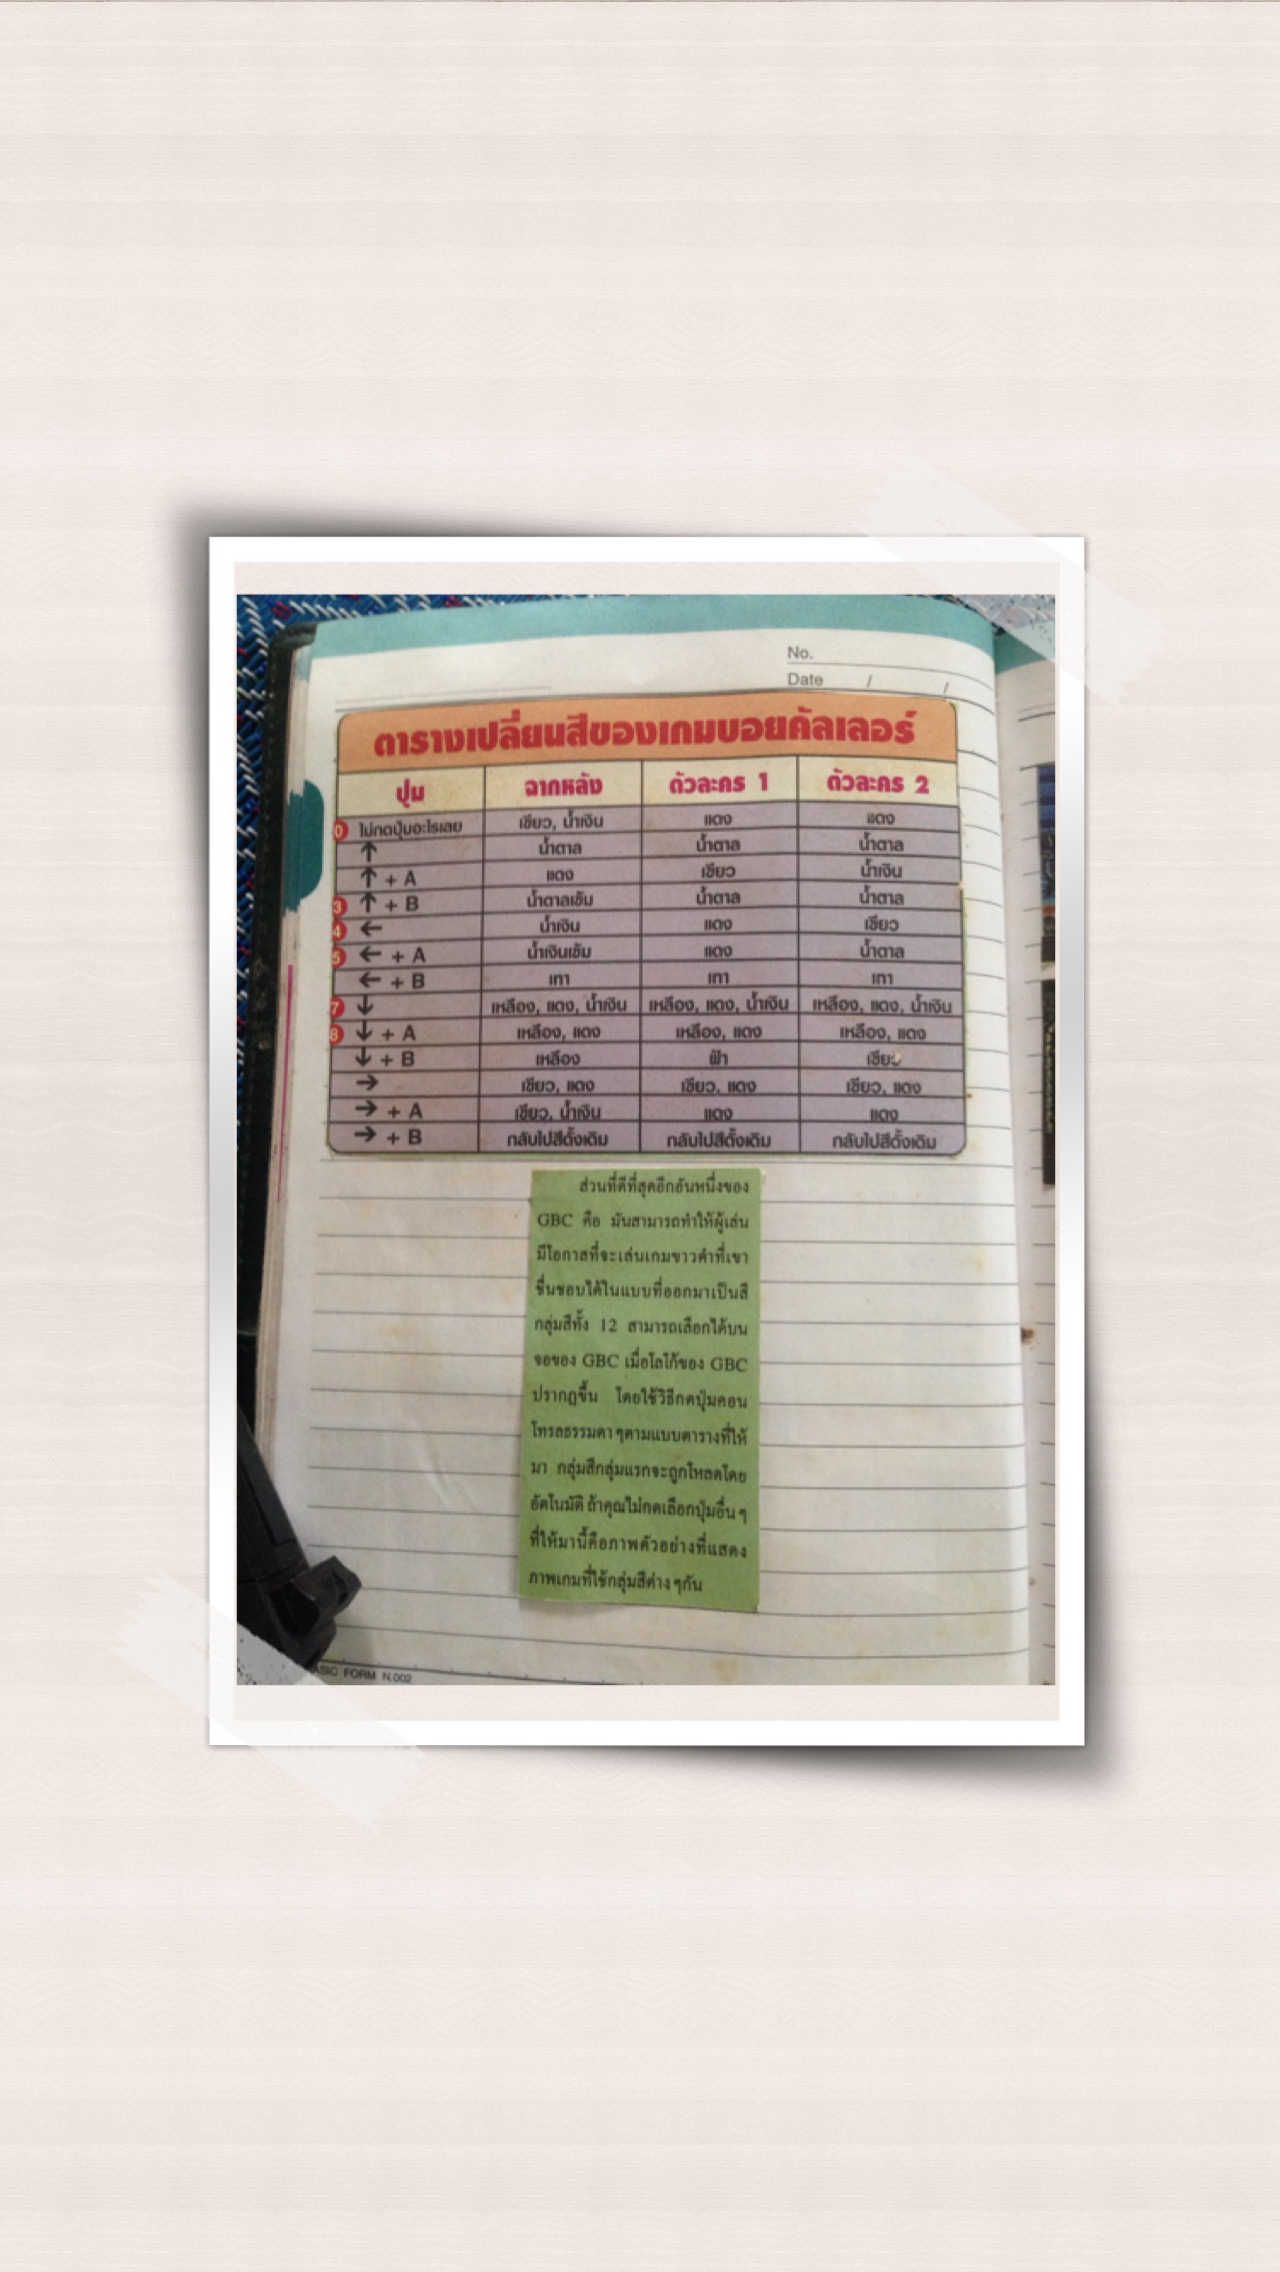 No.
Date / /
ตารางเปลี่ยนสีของเกมบอยคัลเลอร์
ปุ่ม ฉากหลัง ตัวละคร 1 ตัวละคร 2
0 ไม่กดปุ่มอะไรเลย เขียว, น้ำเงิน แดง แดง
↑ น้ำตาล น้ำตาล น้ำตาล
↑ + A แดง เขียว น้ำเงิน
3 ↑ + B น้ำตาลเข้ม น้ำตาล น้ำตาล
4 ← น้ำเงิน แดง เขียว
5 ← + A น้ำเงินเข้ม แดง น้ำตาล
← + B เทา เทา เทา
7 ↓ เหลือง, แดง, น้ำเงิน เหลือง, แดง, น้ำเงิน เหลือง, แดง, น้ำเงิน
8 ↓ + A เหลือง, แดง เหลือง, แดง เหลือง, แดง
↓ + B เหลือง ฟ้า เขียว
→ เขียว, แดง เขียว, แดง เขียว, แดง
→ + A เขียว, น้ำเงิน แดง แดง
→ + B กลับไปสีดั้งเดิม กลับไปสีดั้งเดิม กลับไปสีดั้งเดิม
ส่วนที่ดีที่สุดอีกอันหนึ่งของ
GBC คือ มันสามารถทำให้ผู้เล่น
มีโอกาสที่จะเล่นเกมขาวดำที่เขา
ชื่นชอบได้ในแบบที่ออกมาเป็นสี
กลุ่มสีทั้ง 12 สามารถเลือกได้บน
จอของ GBC เมื่อโลโก้ของ GBC
ปรากฏขึ้น โดยใช้วิธีกดปุ่มคอน
โทรลธรรมดา ๆตามแบบตารางที่ให้
มา กลุ่มสีกลุ่มแรกจะถูกโหลดโดย
อัตโนมัติ ถ้าคุณไม่กดเลือกปุ่มอื่น ๆ
ที่ให้มานี้คือภาพตัวอย่างที่แสดง
ภาพเกมที่ใช้กลุ่มสีต่าง ๆกัน
FORM N.002